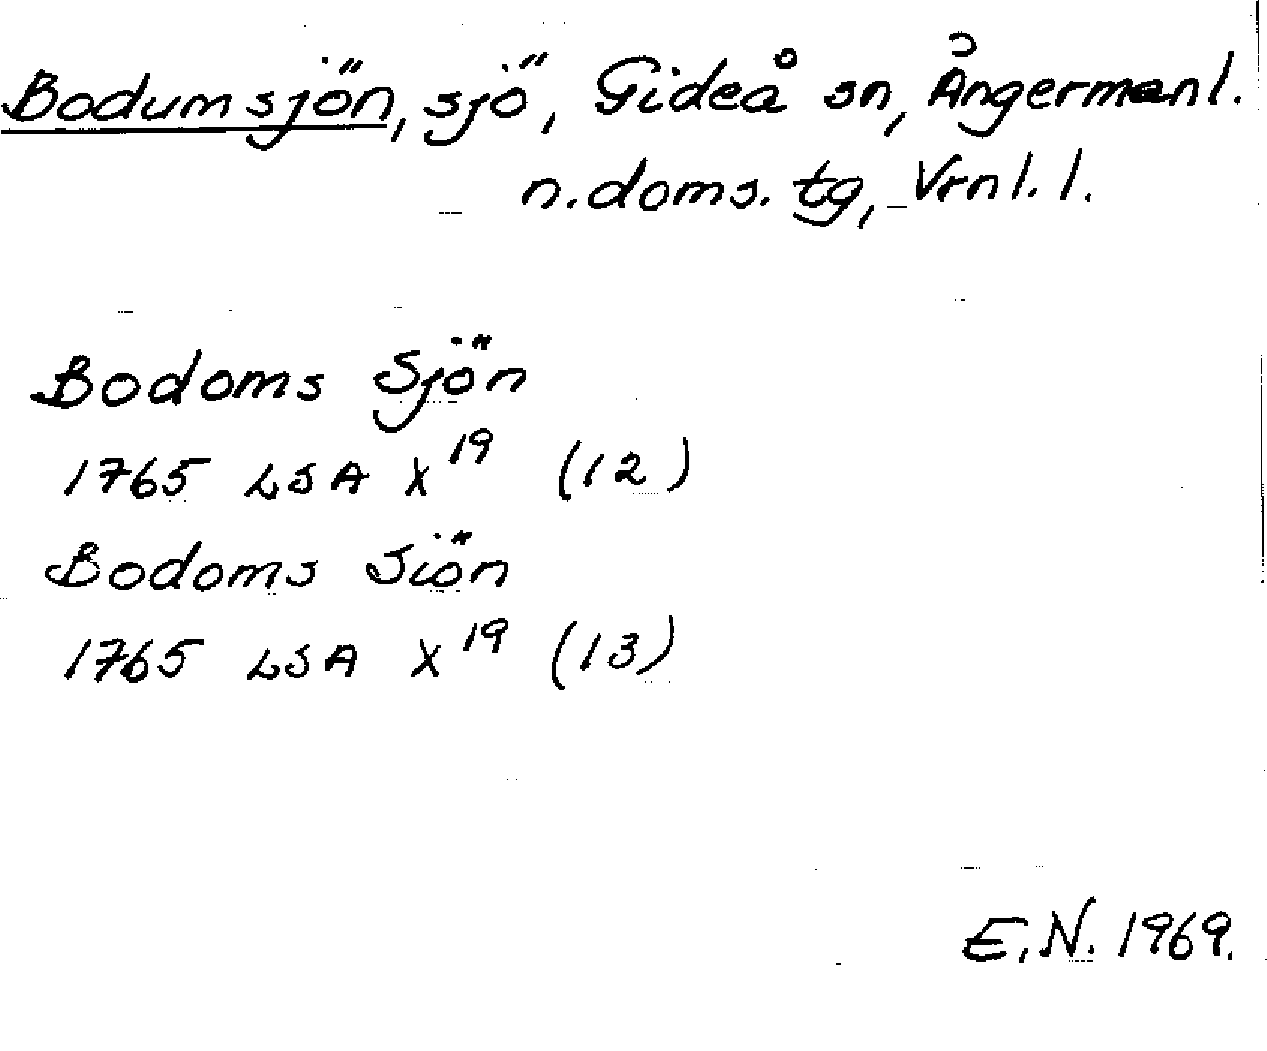 Bodumsjön, sjö, Gideå sn, Ångermanl.
n. doms. tg, Vrnl. l.
Bodoms Sjön
1765 LSA X¹⁹ (12)
Bodoms Siön
1765 LSA X¹⁹ (13)
E.N. 1969.